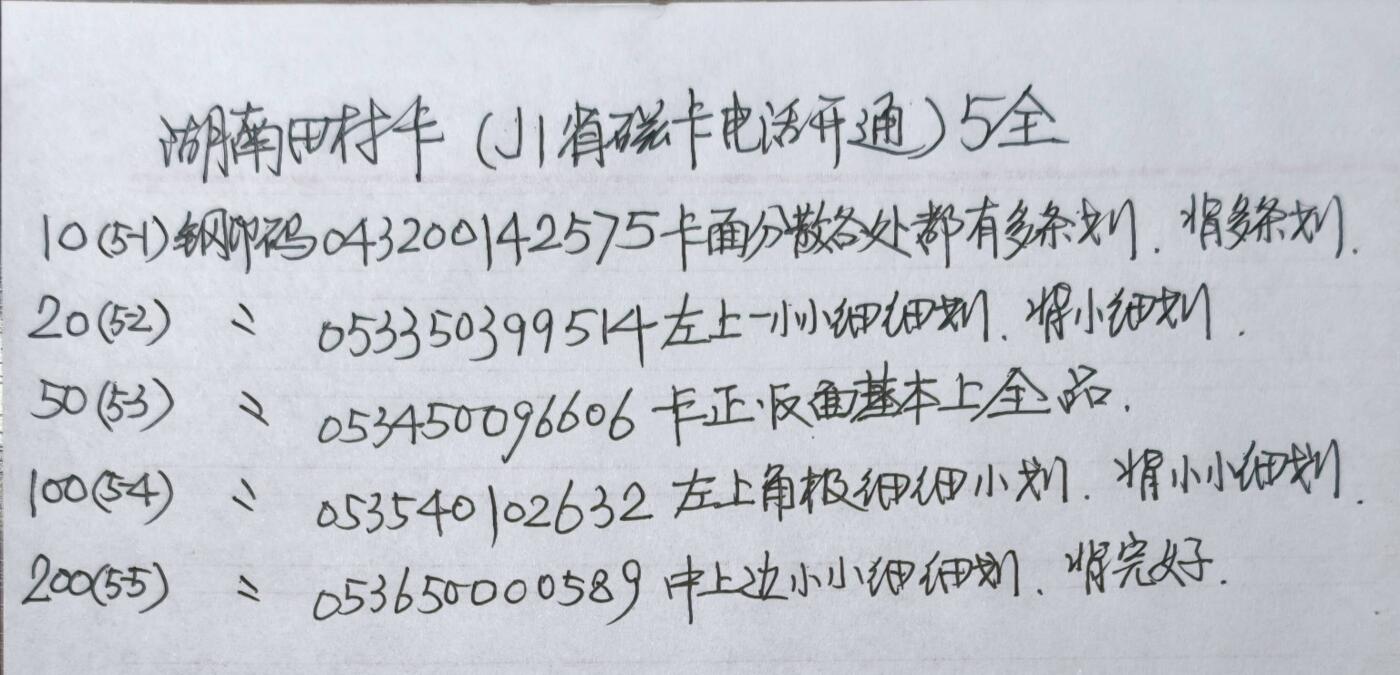 湖南田村卡（川省磁卡电话开通）5全
10(5-1)钢印码043200142575卡面分散各处都有多条划．背多条划．
20(5-2) 〃 053350399514左上一小小细细划．背小细划．
50(5-3) 〃 053450096606卡正．反面基本上全品．
100(5-4) 〃 053540102632左上角极细细小划．背小小细划．
200(5-5) 〃 053650000589中上边小小细细划．背完好．